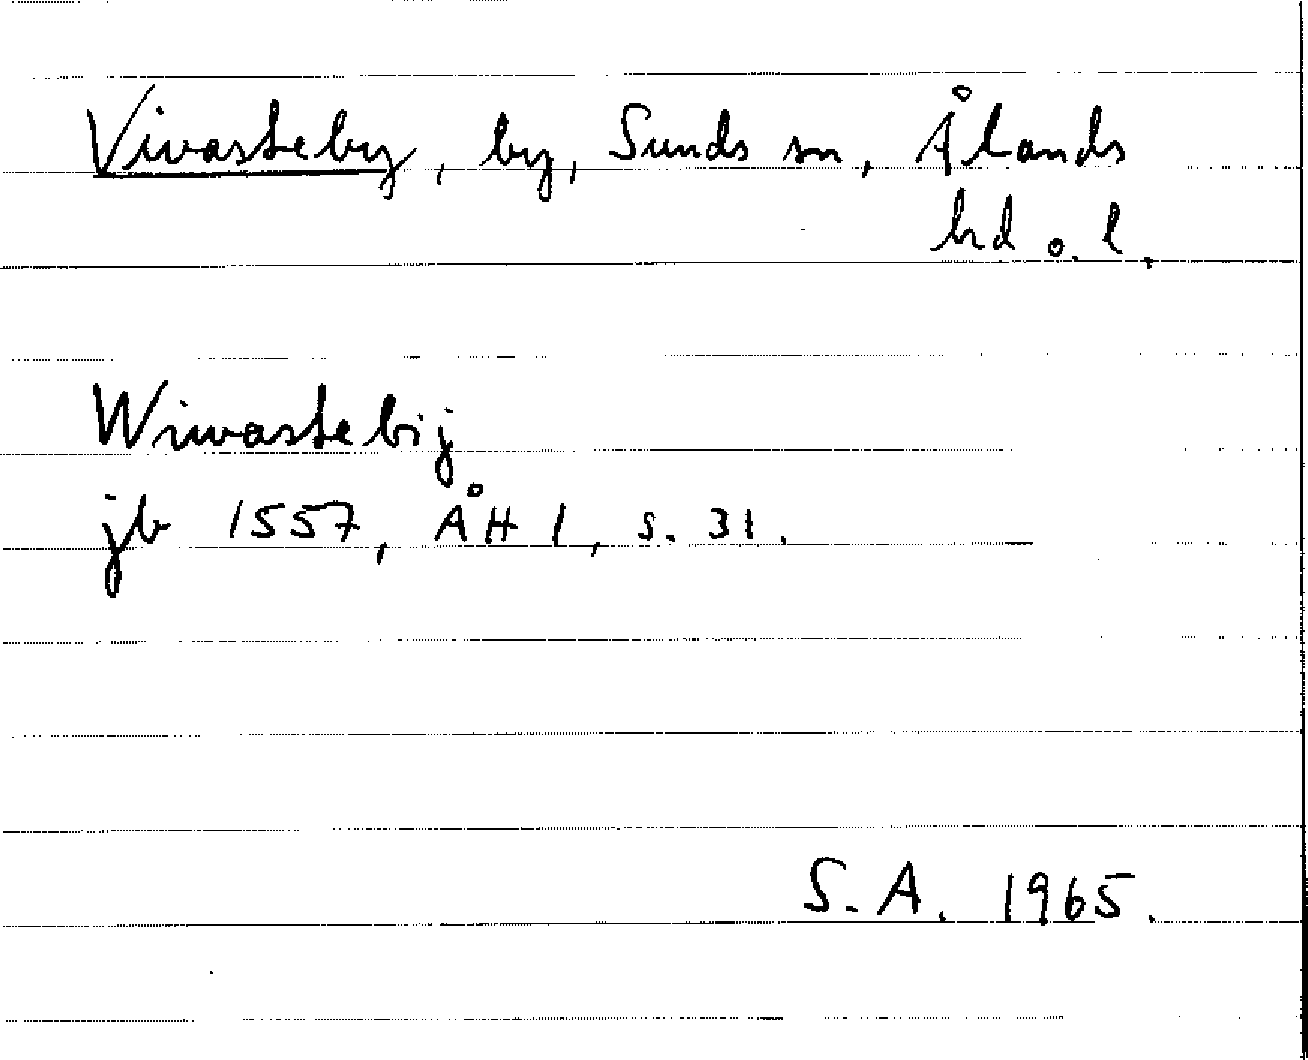 Vivasteby, by, Sunds sn, Ålands
hd o. l.
Wiwastebij
jb 1557, ÅH 1, s. 31.
S. A. 1965.